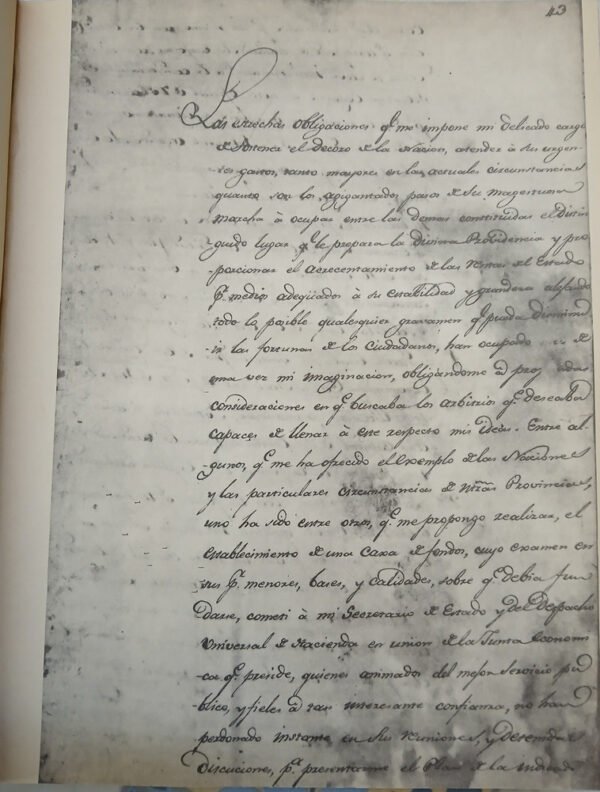 43
Las estrechas obligaciones q.e me impone mi delicado cargo
de sostener el decoro de la Nacion, atender à sus urgen-
tes gastos, tanto mayores en las actuales circunstancias
quanto son los agigantados pasos de su magestuosa
marcha à ocupar entre las demas constituidas el distin
guido lugar q.e le prepara la Divina Providencia y pro
-porcionar el acrecentamiento de las rentas del Estado
p.r medios adequados à su estabilidad y grandeza alejando
todo lo posible qualesquier gravamen q.e pueda disminu
ir las fortunas de los Ciudadanos, han ocupado de
una vez mi imaginacion, obligandome à
consideraciones en q.e buscaba los arbitrios q.e deseaba
capaces de llenar à este respecto mis ideas. Entre al-
-gunos, q.e me ha ofrecido el exemplo de las Naciones
y las particulares circunstancias de ntrãs Provincias,
uno ha sido entre otros, q.e me propongo realizar, el
establecimiento de una Caxa de fondos, cuyo examen en
sus p.r menores, bases, y calidades, sobre q.e debia fun
darse, cometi à mi Secretario de Estado y del Despacho
Universal de Hacienda en union de la Junta Economi
ca q.e preside, quienes animados del mejor Servicio pu
blico, y fieles à tan interesante confianza, no han
perdonado instante en sus reuniones, y detenidas
discuciones, p.a presentarme el Plan de la indicada